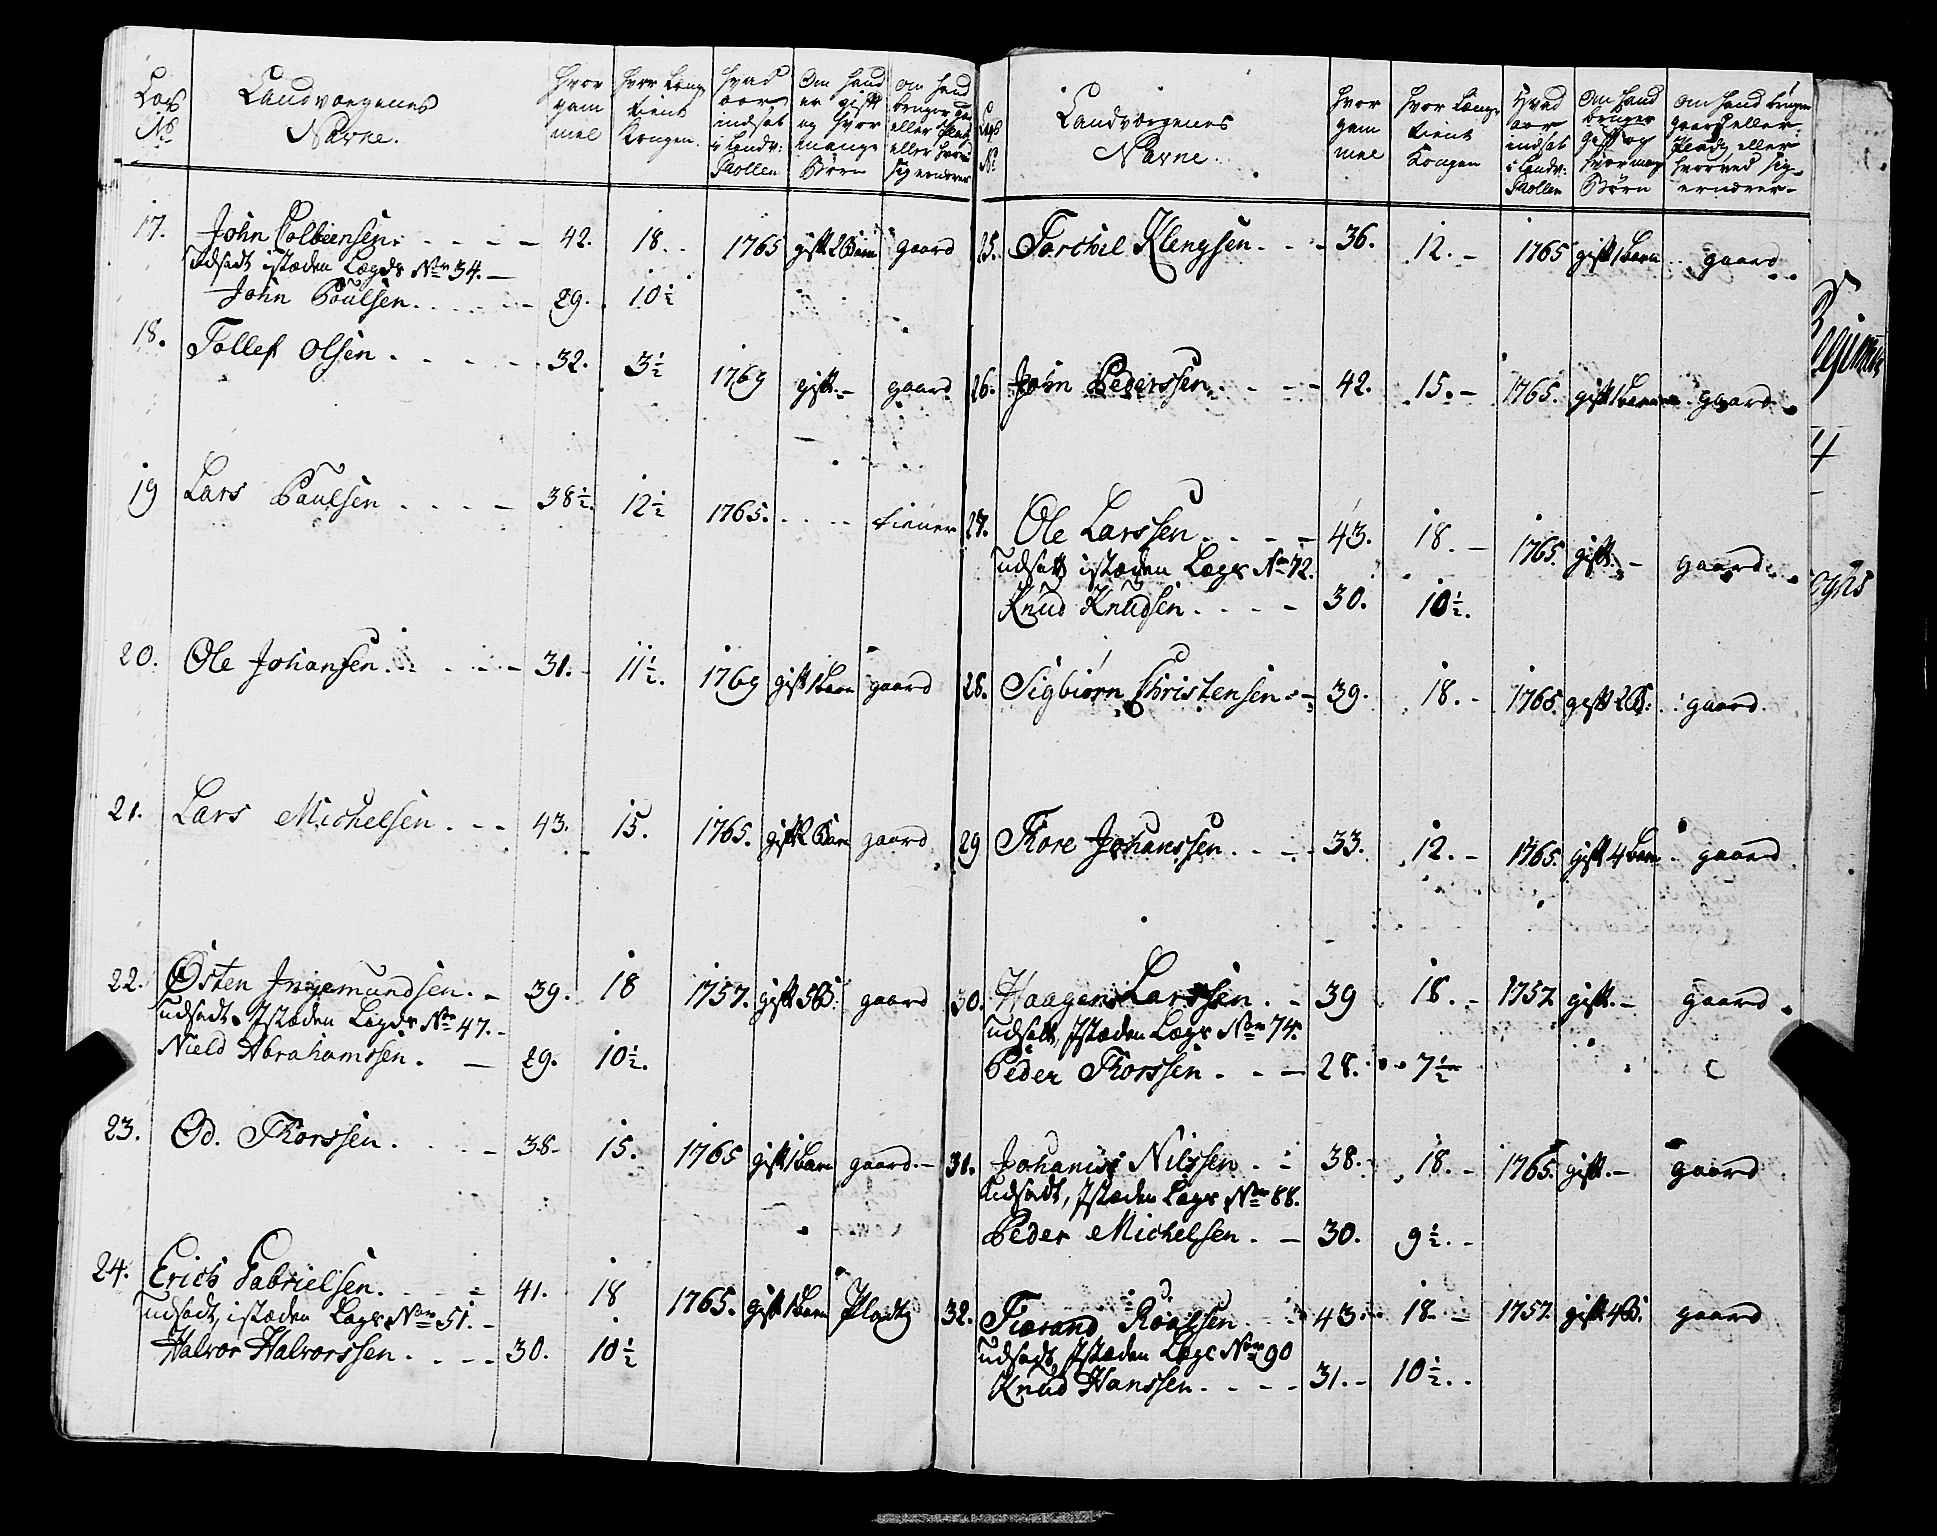 Lægs No | Landværgenes Navne. | Hvor gam mel | hvor Længe tient Kongen. | hvad aar indsat i Landv: Rollen | Om hand er gift og hvor mange Børn | Om hand bruger gaard eller Plads eller hvormed sig ernærer
17. John Colbiensen. 42. 18. 1765 gift 2 Børn gaard
Udsadt istæden Lægds No 34.
John Poulsen. 29. 10½
18. Tollef Olsen 32. 3½ 1769 gift gaard
19 Lars Paulsen 38½. 12½ 1765. tiener
20. Ole Johansen. 31. 11½. 1769 gift 1 Barn gaard
21. Lars Michelsen. 43. 15. 1765. gift 2 Børn gaard
22. Østen Ingemundsen. 39. 18 1757. gift 3 B. gaard
udsadt Istæden Lægds No 47.
Nield Abrahamssen. 29. 10½.
23. Od. Thorssen. 38. 15. 1765 gift 1 Barn gaard.
24. Erich Gabrielsen. 41. 18 1765. gift 1 Barn Plads
udsadt, istæden Lægs No 51.
Halvor Halvorssen. 30. 10½
Lægs No | Landværgenes Navne. | Hvor gam mel | hvor Længe tient Kongen | Hvad aar indsat i Landv: Rollen | Om hand gift og hvor mange Børn | Om hand bruger gaard eller Plads eller hvorved sig ernærer
25. Torchil Klengsen. 36. 12. 1765 gift 1 Barn gaard
26. John Pederssen. 42. 15. 1765. gift 1 Barn gaard.
27. Ole Larssen. 43. 18. 1765. gift. gaard.
udsatt istæden Lægs No 72.
Knud Knudsen. 30. 10½.
28. Sigbiørn Christensen. 39. 18. 1765. gift 2 B: gaard.
29 Thore Johanssen. 33. 12. 1765. gift 4 Børn gaard
30. Haagen Larssen. 39 18. 1757. gift. gaard
udsatt, Istæden Lægs No 74.
Peder Thorssen. 28. 7½
31. Johanis Nilssen. 38. 18. 1765. gift. gaard
Udsadt, Istæden Lægs No 88.
Peder Michelsen. 30. 9½.
32. Tiærand Roalsen. 43. 18. 1757. gift 4 B. gaard
udsadt, Istæden Lægs No 90
Knud Hanssen. 31. 10½.